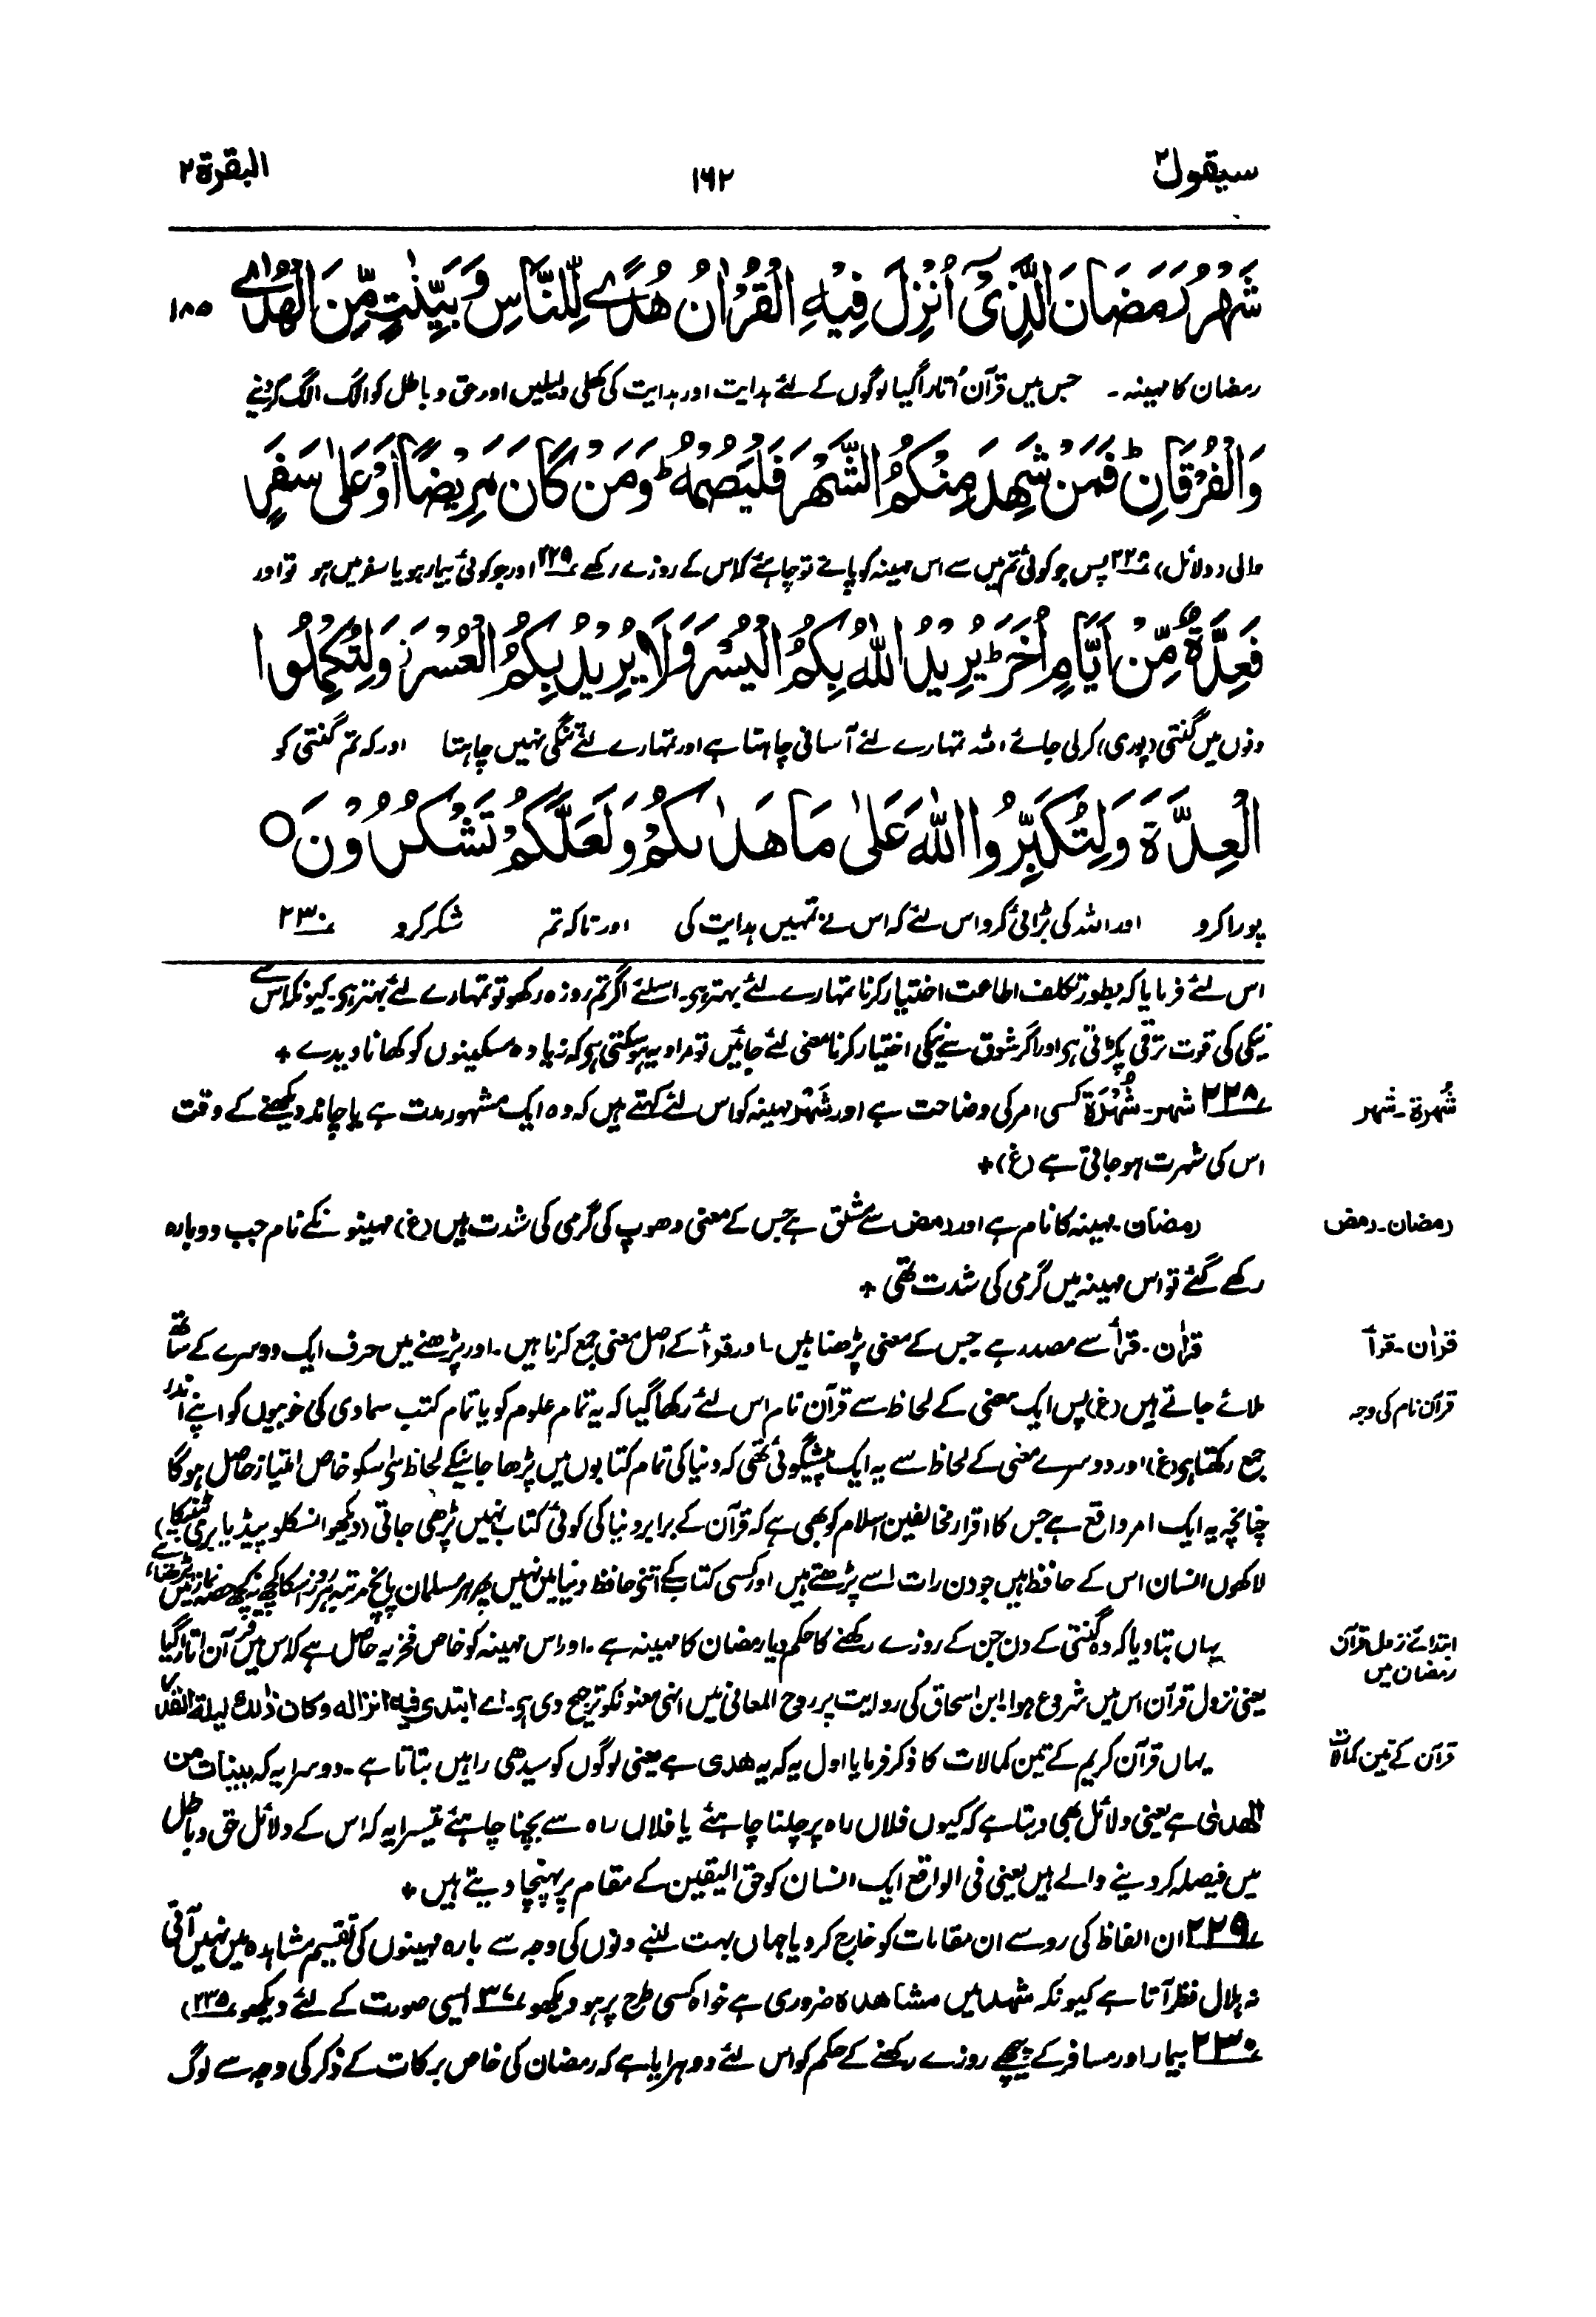 سیقول۲
۱۶۲
البقرۃ۲
شَهْرُ رَمَضَانَ الَّذِیْۤ اُنْزِلَ فِیْهِ الْقُرْاٰنُ هُدًے لِّلنَّاسِ وَ بَیِّنٰتٍ مِّنَ الْهُدٰے
۱۸۵
رمضان کا مہینہ ۔ جس میں قرآن اُتارا گیا لوگوں کے لئے ہدایت اور ہدایت کی کھلی دلیلیں اور حق و باطل کو الگ الگ کر دینے
وَالْفُرْقَانِ ؕ فَمَنْ شَهِدَ مِنْكُمُ الشَّهْرَ فَلْیَصُمْهُ ؕ وَمَنْ كَانَ مَرِیْضًا اَوْ عَلٰى سَفَرٍ
والی (دلائل) ۲۲۸ پس جو کوئی تم میں سے اس مہینہ کو پائے تو چاہئے کہ اس کے روزے رکھے ۲۲۹ اور جو کوئی بیمار ہو یا سفر میں ہو تو اور
فَعِدَّةٌ مِّنْ اَیَّامٍ اُخَرَ ؕ یُرِیْدُ اللّٰهُ بِكُمُ الْیُسْرَ وَ لَا یُرِیْدُ بِكُمُ الْعُسْرَ ز وَ لِتُكْمِلُوا
دنوں میں گنتی (پوری) کر لی جائے اللہ تمہارے لئے آسانی چاہتا ہے اور تمہارے لئے تنگی نہیں چاہتا اور کہ تم گنتی کو
الْعِدَّةَ وَ لِتُكَبِّرُوا اللّٰهَ عَلٰى مَا هَدٰىكُمْ وَ لَعَلَّكُمْ تَشْكُرُوْنَ ○
پورا کرو اور اللہ کی بڑائی کرو اس لئے کہ اس نے تمہیں ہدایت کی اور تاکہ تم شکر کرو ۲۳۰
اس لئے فرمایا کہ بطور تکلف اطاعت اختیار کرنا تمہارے لئے بہتر ہی۔ اسلئے اگر تم روزہ رکھو تو تمہارے لئے بہتر ہی۔ کیونکہ اس سے
نیکی کی قوت ترقی پکڑتی ہی اور اگر شوق سے نیکی اختیار کرنا معنی لئے جائیں تو مراد یہ ہو سکتی ہی کہ زیادہ مسکینوں کو کھانا دیدے +
شُهرۃ۔ شهر
۲۲۸ شهر۔ شُهْرَۃ کسی امر کی وضاحت ہے اور شَهْر مہینہ کو اس لئے کہتے ہیں کہ وہ ایک مشہور مدت ہے یا چاند دیکھنے کے وقت
اس کی شہرت ہو جاتی ہے (غ) +
رمضان۔ رمض
رمضان۔ مہینہ کا نام ہے اور رمض سے مشتق ہے جس کے معنی دھوپ کی گرمی کی شدت ہیں (غ) مہینو نکے نام جب دوبارہ
رکھے گئے تو اس مہینہ میں گرمی کی شدت تھی +
قراٰن۔ قرأ
قراٰن۔ قرأ سے مصدر ہے جس کے معنی پڑھنا ہیں۔ اور قرأ کے اصل معنی جمع کرنا ہیں۔ اور پڑھنے میں حرف ایک دوسرے کے ساتھ
قرآن نام کی وجہ
ملائے جاتے ہیں (غ) پس ایک معنی کے لحاظ سے قرآن نام اس لئے رکھا گیا کہ یہ تمام علوم کو یا تمام کتب سماوی کی خوبیوں کو اپنے اندر
جمع رکھتا ہی (غ) اور دوسرے معنی کے لحاظ سے یہ ایک پیشگوئی تھی کہ دنیا کی تمام کتابوں میں پڑھا جانیکے لحاظ سے اسکو خاص امتیاز حاصل ہوگا
چنانچہ یہ ایک امر واقع ہے جس کا اقرار مخالفین اسلام کو بھی ہے کہ قرآن کے برابر دنیا کی کوئی کتاب نہیں پڑھی جاتی (دیکھو انسکلو پیڈیا بری ٹینیکا)
لاکھوں انسان اس کے حافظ ہیں جو دن رات اسے پڑھتے ہیں اور کسی کتاب کے اتنے حافظ دنیا میں نہیں پھر ہر مسلمان پانچ مرتبہ ہر روز اسکا کچھ نہ کچھ حصہ نماز میں پڑھتا ہے
ابتدائے نزول قرآن رمضان میں
یہاں بتا دیا کہ وہ گنتی کے دن جن کے روزے رکھنے کا حکم دیا رمضان کا مہینہ ہے۔ اور اس مہینہ کو خاص فخر یہ حاصل ہے کہ اس میں قرآن اتارا گیا
یعنی نزول قرآن اس میں شروع ہوا۔ ابن اسحاق کی روایت پر روح المعانی میں انہی معنو نکو ترجیح دی ہی۔ اے ابتدی فیه انزاله و کان ذٰلك لیلة القدر
قرآن کے تین کمالات
یہاں قرآن کریم کے تین کمالات کا ذکر فرمایا اول یہ کہ یہ هدی ہے یعنی لوگوں کو سیدھی راہیں بتاتا ہے۔ دوسرا یہ کہ بینات من
الهدٰی ہے یعنی دلائل بھی دیتا ہے کہ کیوں فلاں راہ پر چلنا چاہئے یا فلاں راہ سے بچنا چاہئے تیسرا یہ کہ اس کے دلائل حق و باطل
میں فیصلہ کر دینے والے ہیں یعنی فی الواقع ایک انسان کو حق الیقین کے مقام پر پہنچا دیتے ہیں +
۲۲۹ ان الفاظ کی رو سے ان مقامات کو خارج کر دیا جہاں بہت لمبے دنوں کی وجہ سے بارہ مہینوں کی تقسیم مشاہدہ میں نہیں آتی
نہ ہلال نظر آتا ہے کیونکہ شهد میں مشاهدہ ضروری ہے خواہ کسی طرح پر ہو دیکھو ۳۷ ایسی صورت کے لئے دیکھو ۲۳۵)
۲۳۰ بیمار اور مسافر کے پیچھے روزے رکھنے کے حکم کو اس لئے دوہرایا ہے کہ رمضان کی خاص برکات کے ذکر کی وجہ سے لوگ